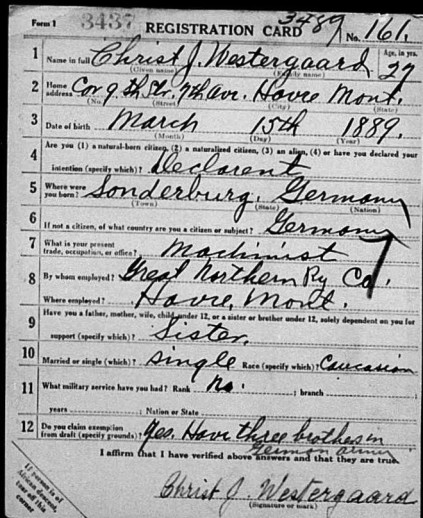 Form 1 3437 REGISTRATION CARD 3489 No. 161.
1 Name in full Christ J. Westergaard. Age, in yrs. 27
(Given name) (Family name)
2 Home address Cor 9th Str. 7th Ave. Havre Mont.
(No.) (Street) (City) (State)
3 Date of birth March 15th 1889.
(Month) (Day) (Year)
4 Are you (1) a natural-born citizen, (2) a naturalized citizen, (3) an alien, (4) or have you declared your
intention (specify which)? Declarent
5 Where were you born? Sonderburg, Germany
(Town) (State) (Nation)
6 If not a citizen, of what country are you a citizen or subject? Germany
7 What is your present trade, occupation, or office? Machinist
8 By whom employed? Great Northern Ry Co.
Where employed? Havre, Mont.
9 Have you a father, mother, wife, child under 12, or a sister or brother under 12, solely dependent on you for
support (specify which)? Sister.
10 Married or single (which)? Single Race (specify which)? Caucasian
11 What military service have you had? Rank No. ; branch
years ; Nation or State
12 Do you claim exemption from draft (specify grounds)? Yes. Have three brothers in
German army
I affirm that I have verified above answers and that they are true.
Christ J. Westergaard
(Signature or mark)
If person is of
African descent,
corner